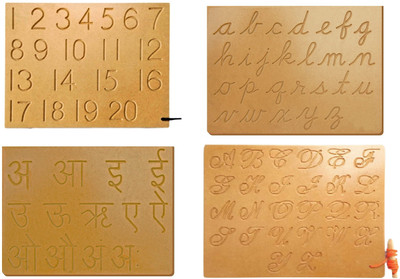 1 2 3 4 5 6 7
8 9 10 11 12
13 14 15 16
17 18 19 20
a b c d e f g
h i j k l m n
o p q r s t u
v w x y z
अ आ इ ई
उ ऊ ऋ ए ऐ
ओ औ अं अः
A B C D E F
G H I J K L
M N O P Q R
S T U V W X
Y Z